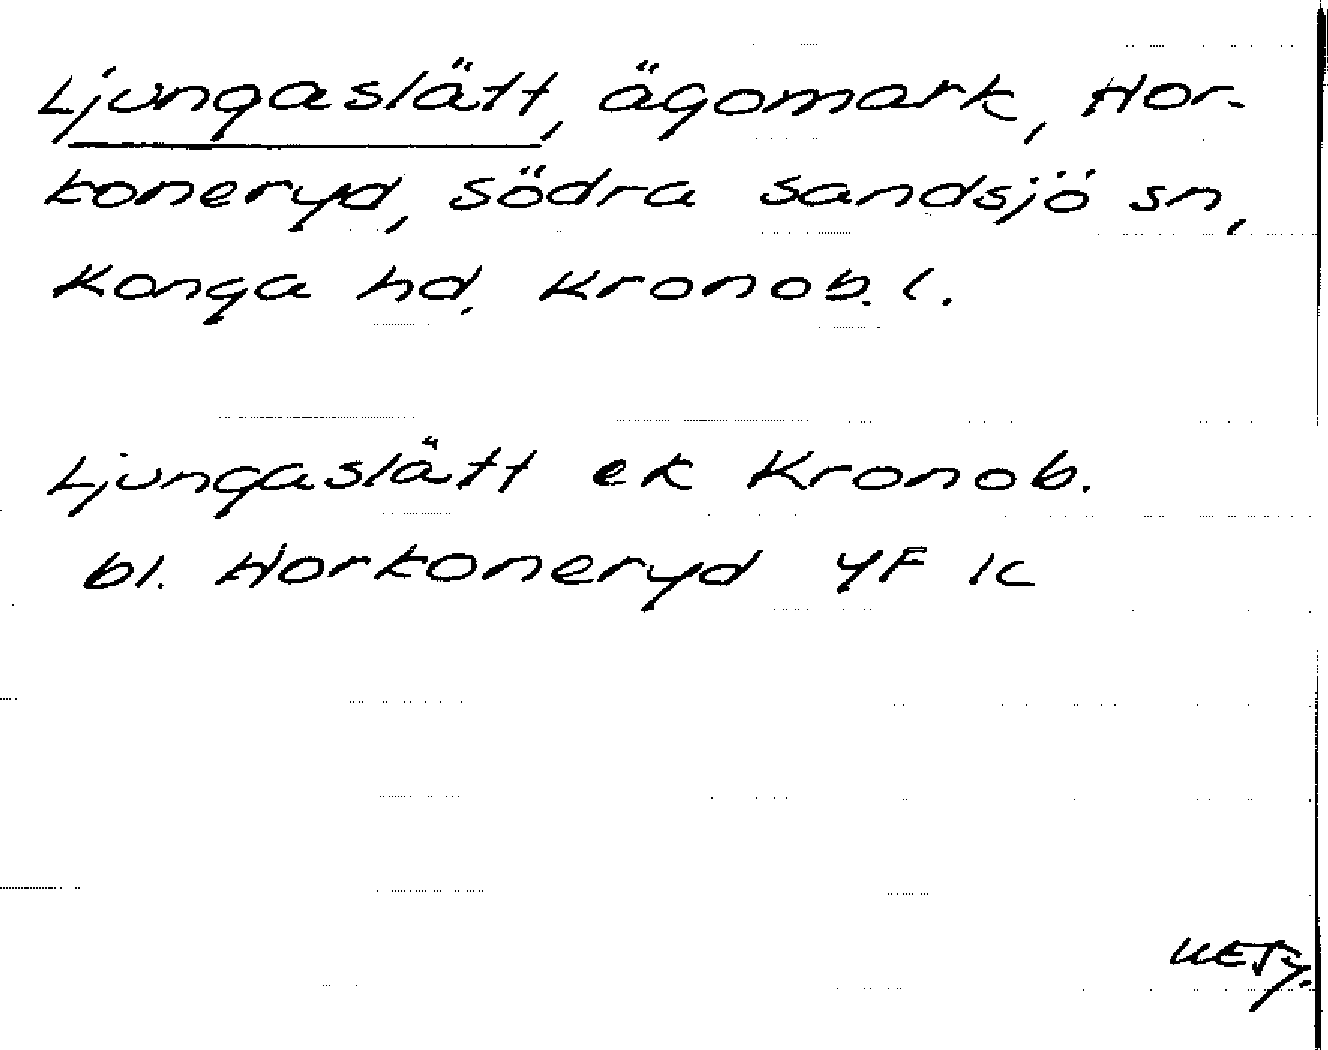 Ljungaslätt, ägomark, Hor-
koneryd, Södra Sandsjö sn,
Konga hd, Kronob. l.
Ljungaslätt ek Kronob.
bl. Horkoneryd YF 1c